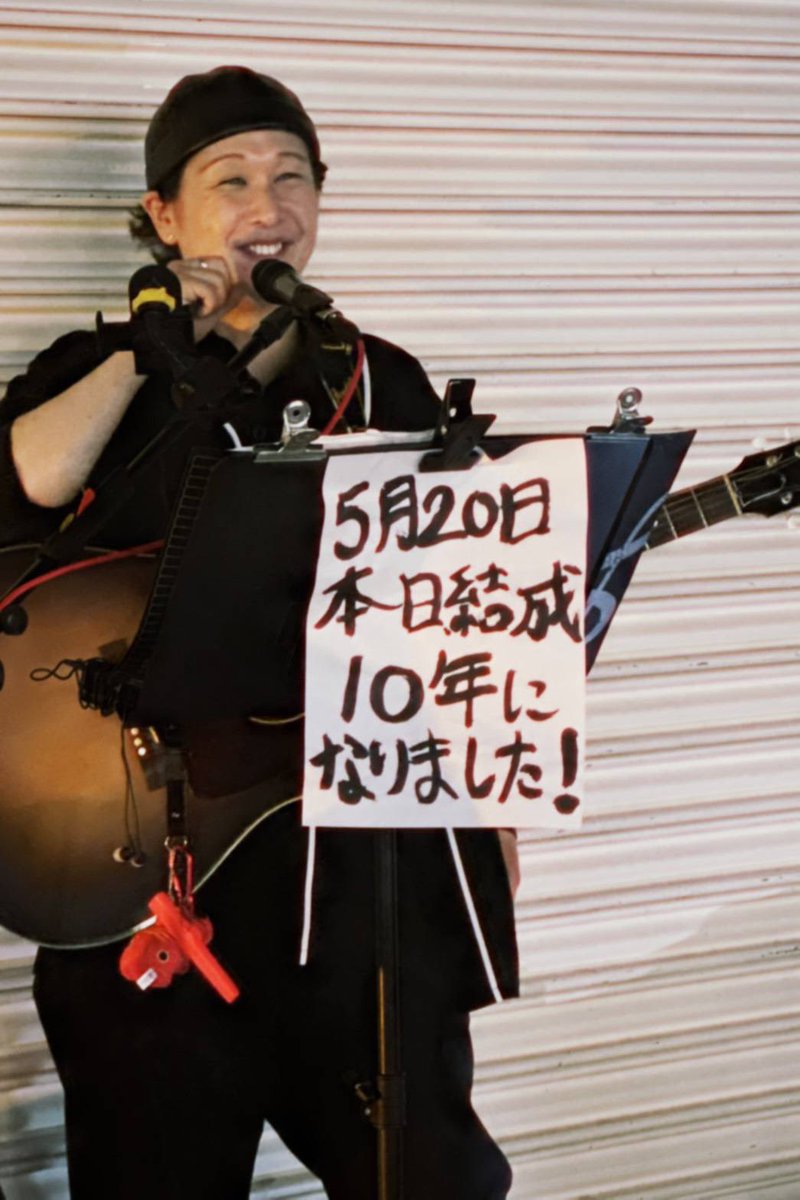 5月20日
本日結成
10年に
なりました!